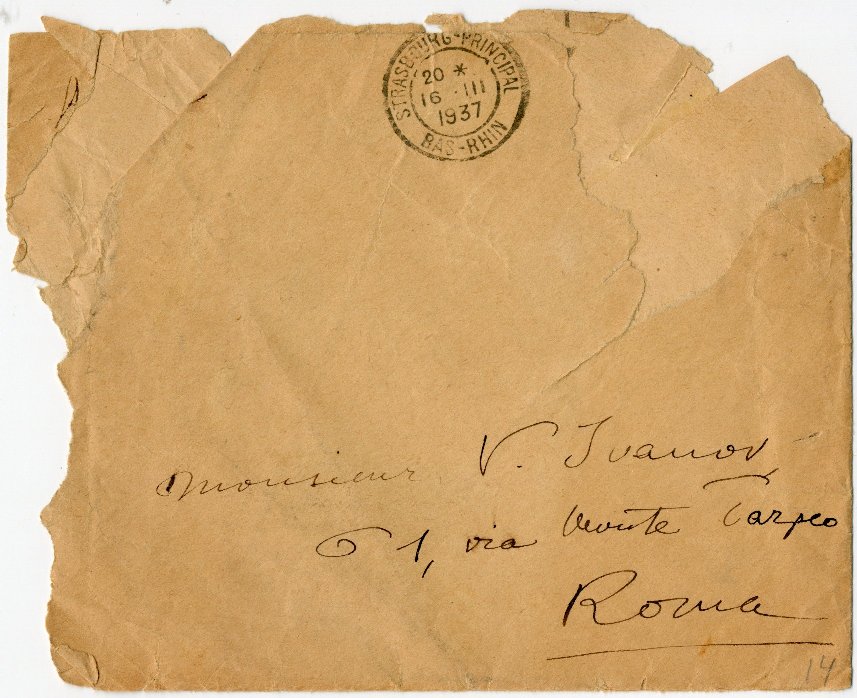 STRASBOURG-PRINCIPAL
20 *
16 III
1937
BAS-RHIN
Monsieur V. Ivanov,
61, via Monte Tarpeo
Roma
14